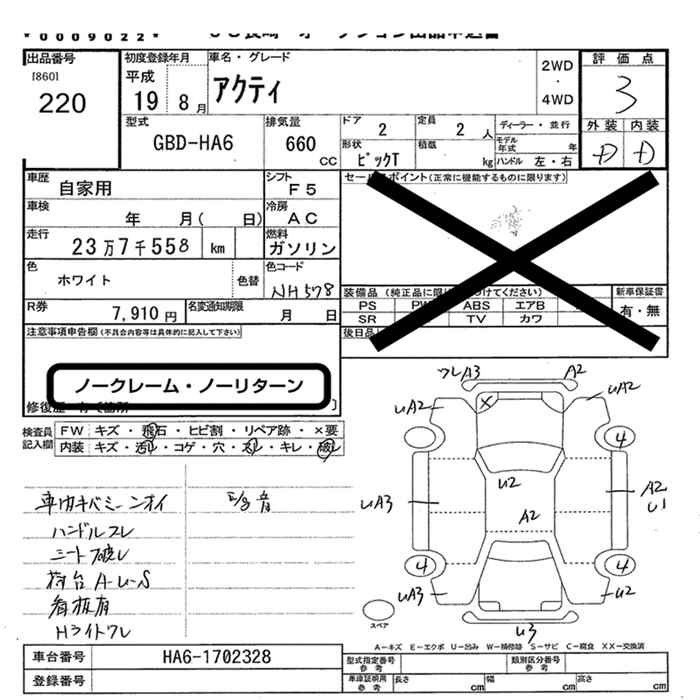 *0009022*
出品番号
[860]
220
初度登録年月
平成
19 8月
車名・グレード
アクティ
2WD
・
4WD
評価点
3
外装 内装
D D
型式
GBD-HA6
排気量
660
CC
ドア
2
定員
2 人
ディーラー・並行
モデル年式 年
形状
ピックT
積載
kg
ハンドル 左・右
車歴
自家用
シフト
F5
セールスポイント(正常に機能するものに限ります)
車検
年 月( 日)
冷房
AC
走行
23万7千558 km
燃料
ガソリン
色
ホワイト
色替
色コード
NH578
装備品 (純正品に限り つけてください)
PS PW ABS エアB
SR TV カワ
新車保証書
有・無
R券
7,910円
名変通知期限
月 日
後日品
注意事項申告欄(不具合内容等は具体的に記入して下さい)
ノークレーム・ノーリターン
修復歴
検査員記入欄
FW キズ・飛石・ヒビ割・リペア跡・×要
内装 キズ・汚レ・コゲ・穴・スレ・キレ・破レ
ハンドルスレ
シート破レ
荷台A-U-S
看板有
Hライトワレ
ワレA3 A2
UA2 UA2
4
U2
UA3 A2 A2
U1
4 4
UA3 U2
U3
スペア
A-キズ E-エクボ U-凹み W-補修跡 S-サビ C-腐食 XX-交換済
車台番号
HA6-1702328
登録番号
型式指定番号
参考
類別区分番号
参考
車庫証明用
参考
長さ cm
幅 cm
高さ cm